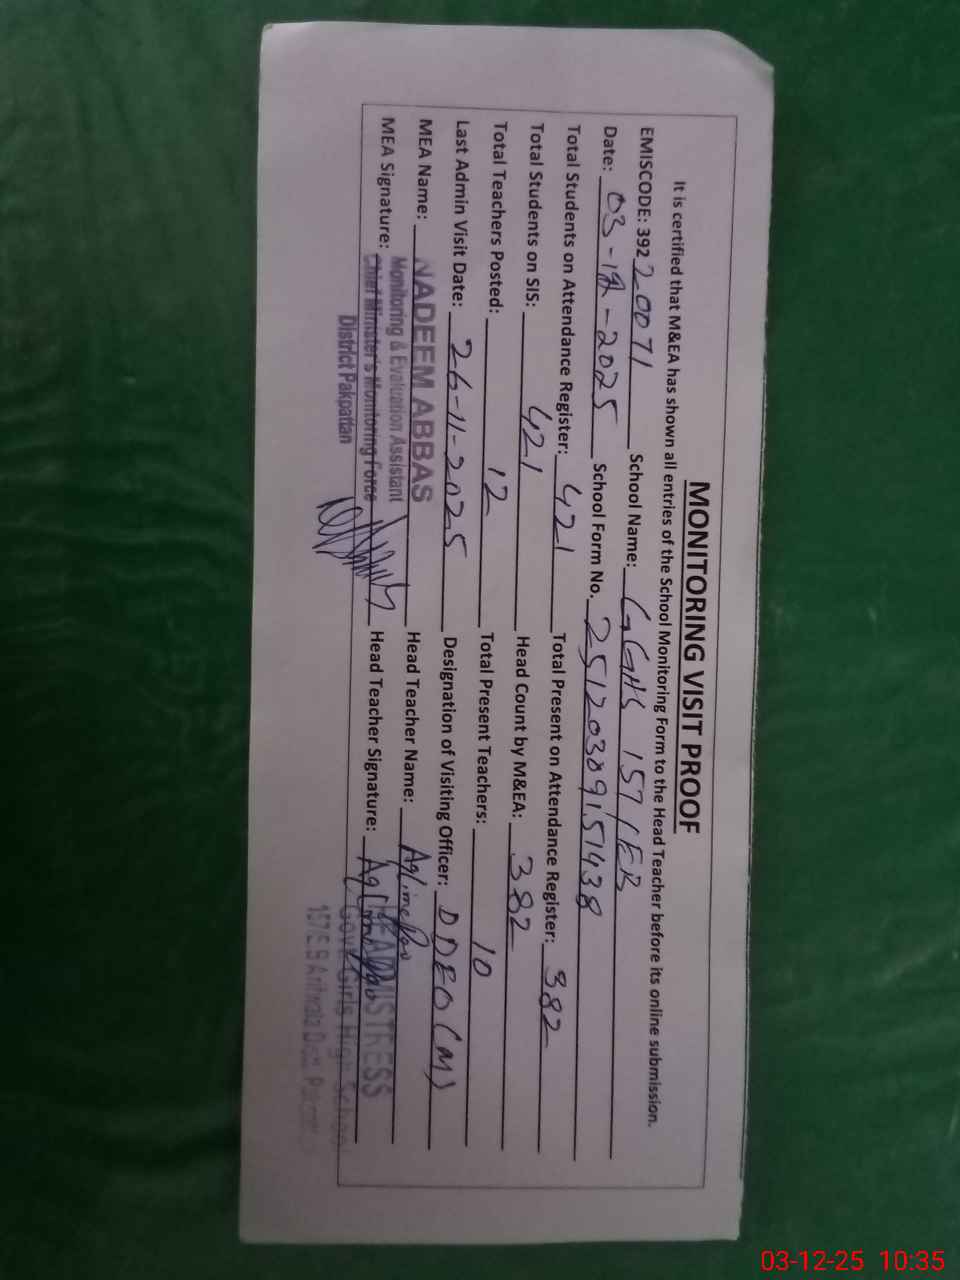 MONITORING VISIT PROOF
It is certified that M&EA has shown all entries of the School Monitoring Form to the Head Teacher before its online submission.
EMISCODE: 39220071 School Name: GGHS 157/EB
Date: 03-12-2025 School Form No. 25120309151438
Total Students on Attendance Register: 421 Total Present on Attendance Register: 382
Total Students on SIS: 421 Head Count by M&EA: 382
Total Teachers Posted: 12 Total Present Teachers: 10
Last Admin Visit Date: 26-11-2025 Designation of Visiting Officer: DDEO (M)
MEA Name: NADEEM ABBAS Head Teacher Name:
Monitoring & Evaluation Assistant
MEA Signature: Chief Minister's Monitoring Force Head Teacher Signature:
District Pakpattan
HEADMISTRESS
Govt. Girls High School
157/E.B Arifwala Distt.
03-12-25 10:35